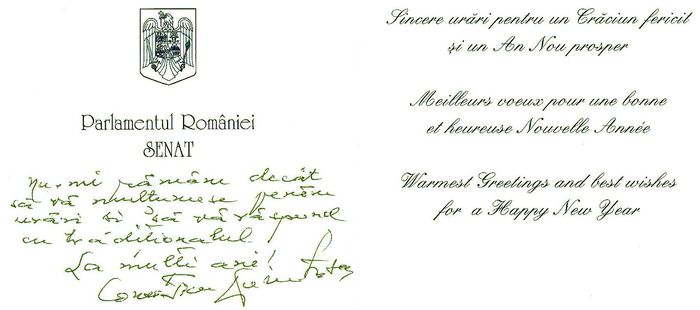 Parlamentul României
SENAT
Nu-mi rămâne decât
să vă mulțumesc pentru
urări și să vă răspund
cu tradiționalul
La mulți ani!
Sincere urări pentru un Crăciun fericit
și un An Nou prosper
Meilleurs voeux pour une bonne
et heureuse Nouvelle Année
Warmest Greetings and best wishes
for a Happy New Year